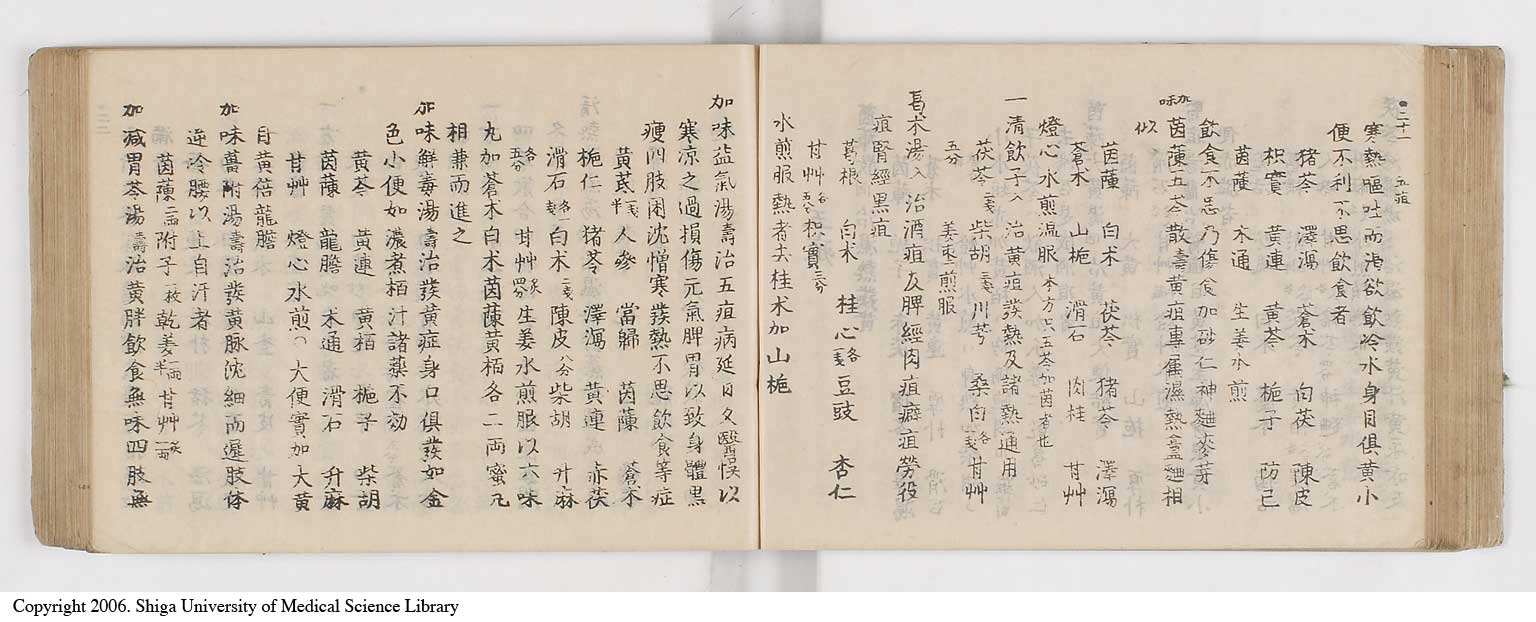 三十一 五疸
寒熱嘔吐而渇欲飲冷水身目俱黄小
便不利不思飲食者
猪苓 澤瀉 蒼术 白茯 陳皮
枳實 黄連 黄芩 梔子 防已
茵蔯 木通 生姜水煎
飲食不忌乃傷食加砂仁神麯麥芽
加味茵蔯五苓散壽黄疸專属濕熱盦麯相
似
茵蔯 白术 茯苓 猪苓 澤瀉
蒼术 山梔 滑石 肉桂 甘艸
燈心水煎温服 本方只五苓加茵者也
一清飲子 治黄疸發熱及諸熱通用
茯苓二戔 柴胡三戔 川芎 桑白各一戔 甘艸
五分 姜棗煎服
葛术湯 治酒疸及脾經肉疸癖疸勞役
疸腎經黒疸
葛根 白术 桂心各一戔 豆豉 杏仁
甘艸各五分 枳實三分
水煎服熱者去桂术加山梔
加味益氣湯壽治五疸病延日久醫悮以
寒凉之過損傷元氣脾胃以致身體黒
瘦四肢困沈憎寒發熱不思飲食等症
黄芪一戔半 人參 當歸 茵蔯 蒼术
梔仁 猪苓 澤瀉 黄連 赤茯
滑石各一戔 白术二戔 陳皮八分 柴胡 升麻
各五分 甘艸炙四分 生姜水煎服以六味
丸加蒼术白术茵蔯黄栢各二両蜜凡
相兼而進之
加味解毒湯壽治發黄症身口俱發如金
色小便如濃煮栢汁諸藥不効
黄芩 黄連 黄栢 梔子 柴胡
茵蔯 龍膽 木通 滑石 升麻
甘艸 燈心水煎 大便實加大黄
目黄蓓龍膽
加味薑附湯壽治發黄脉沈細而遲肢体
逆冷腰以上自汗者
茵蔯二両 附子一枚 乾姜一両半 甘艸炙一両
加減胃苓湯壽治黄胖飲食無味四肢無